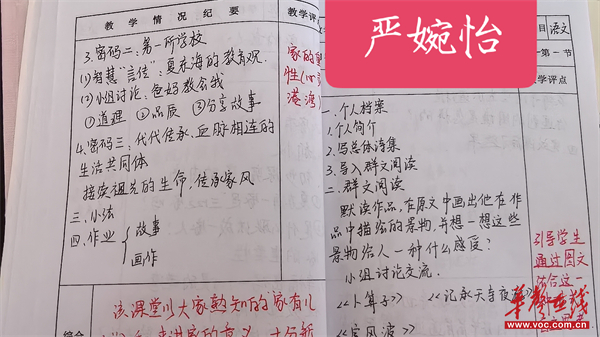 教学情况纪要
教学评
3.密码二：第一所学校
(1)智慧“言传”：夏东海的教育观
(2)小组讨论：爸妈教会我
①道理 ②品质 ③分享故事
4.密码三：代代传承、血脉相连的
生活共同体
接续祖先的生命，传承家风
三.小法
四.作业
故事
画作
家的
港湾
该课堂以大家熟知的“家有儿
综合
严婉怡
目
语文
第一节
学评点
一.个人档案
1.个人简介
2.写总体诗集
3.导入群文阅读
二.群文阅读
默读作品，在原文中画出他在作
品中描绘的景物，并想一想这些
景物给人一种什么感展？
小组讨论交流.
《卜算子》 《记承天寺夜游》
《定风波》
引导学生
通过图文
结合这一
华声在线
www.voc.com.cn